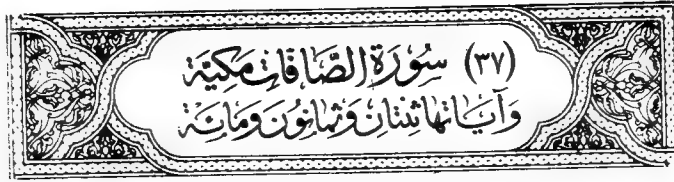 (٣٧) سُورَة الصَّافَاتِ مَكِيَّة
وَآيَاتهَا ثِنتَانِ وَثمَانُونَ وَمائَة